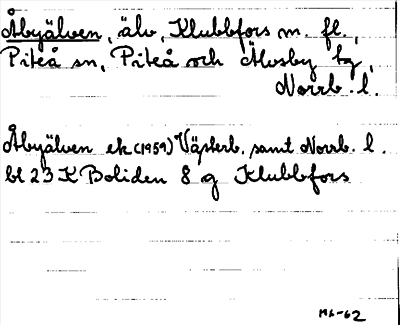 Åbyälven, älv, Klubbfors m. fl.,
Piteå sn, Piteå och Älvsby tg,
Norrb. l.
Åbyälven ek (1959) Västerb. samt Norrb. l.
bl 23 K Boliden 8 g Klubbfors
-62